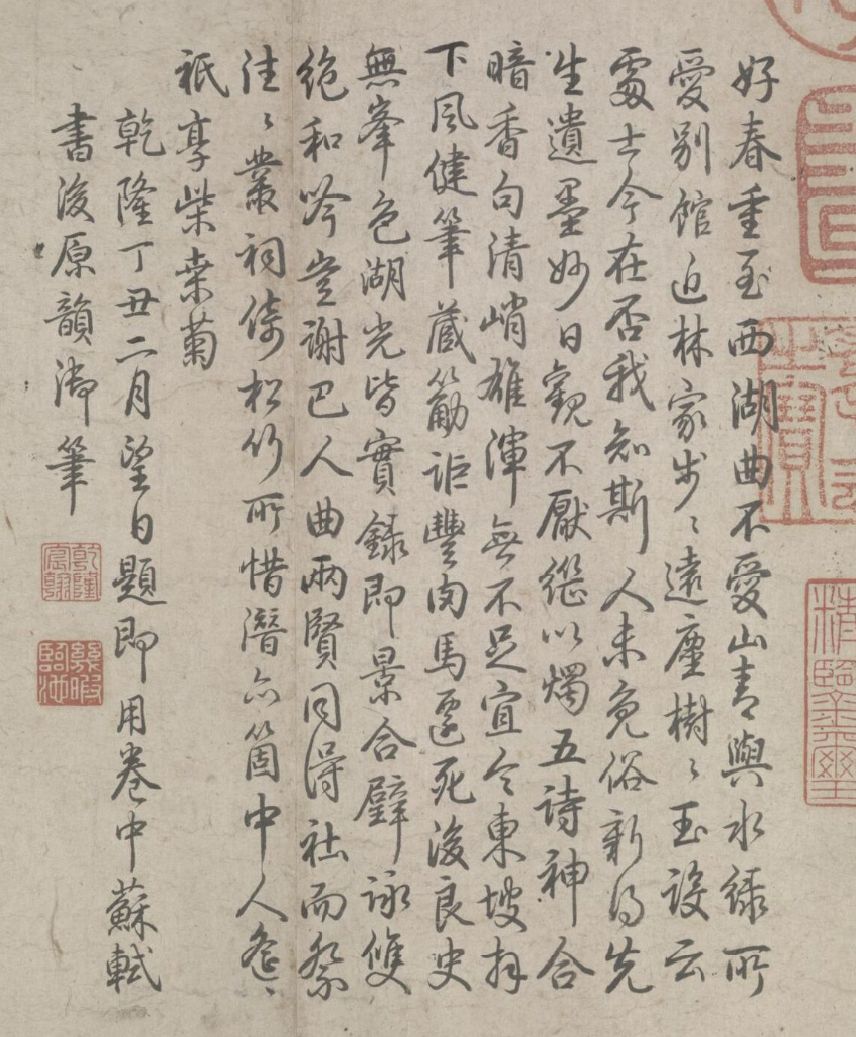 好春重至西湖曲不愛山青與水綠所
愛別館近林家步〻遠塵樹〻玉設云
處士今在否我知斯人未免俗新得先
生遺墨妙日觀不厭繼以燭五詩神合
暗香句清峭雄渾無不足宜令東坡拜
下風健筆藏筋詎豐肉馬遷死後良史
無峯色湖光皆實錄即景合璧詠雙
絶和吟豈謝巴人曲兩賢同得社而祭
往〻叢祠倚松竹所惜潛亦箇中人
祗享柴桒菊
乾隆丁丑二月望日題即用卷中蘇軾
書後原韻御筆
乾隆宸翰
幾暇臨池